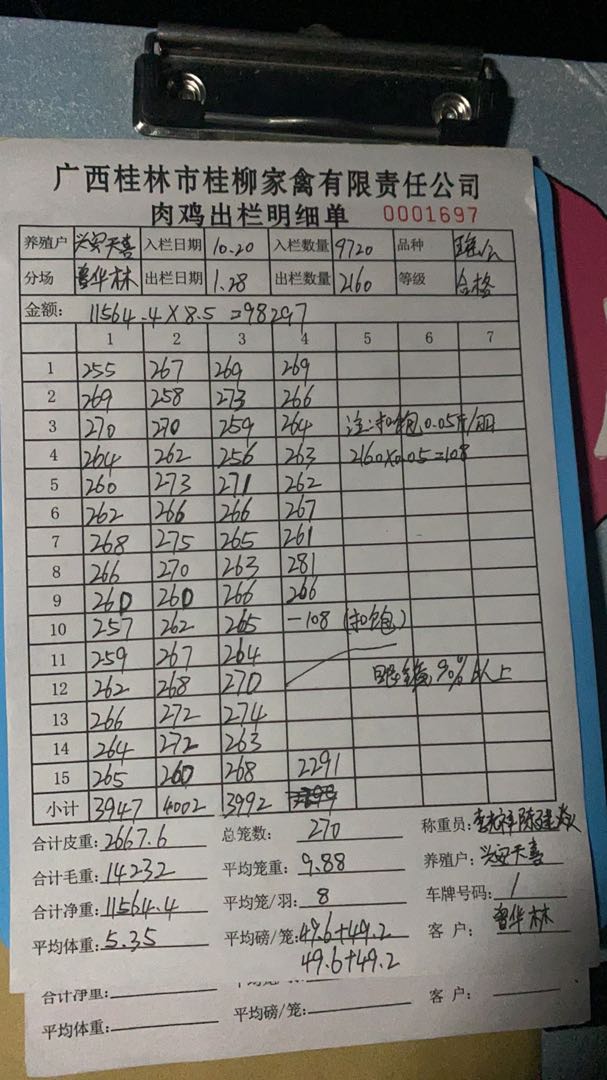 广西桂林市桂柳家禽有限责任公司
肉鸡出栏明细单 0001697
养殖户 兴安天喜 入栏日期 10.20 入栏数量 9720 品种
分场 鲁华林 出栏日期 1.28 出栏数量 2160 等级 合格
金额: 11564.4×8.5=98297
1 2 3 4 5 6 7
1 255 267 269 269
2 269 258 273 266
3 270 270 259 264 注:扣饱0.05斤/羽
4 264 262 256 263 2160×0.05=108
5 260 273 271 262
6 262 266 266 267
7 268 275 265 261
8 266 270 263 281
9 260 260 266 266
10 257 262 265 -108 (扣饱)
11 259 267 264
12 262 268 270 90%以上
13 266 272 274
14 264 272 263
15 265 260 268 2291
小计 3947 4002 3992
合计皮重: 2667.6 总笼数: 270 称重员:
合计毛重: 14232 平均笼重: 9.88 养殖户: 兴安天喜
合计净重: 11564.4 平均笼/羽: 8 车牌号码: 1
平均体重: 5.35 平均磅/笼: 49.6+49.2 客户: 鲁华林
49.6+49.2
合计净重: 客户:
平均体重: 平均磅/笼: